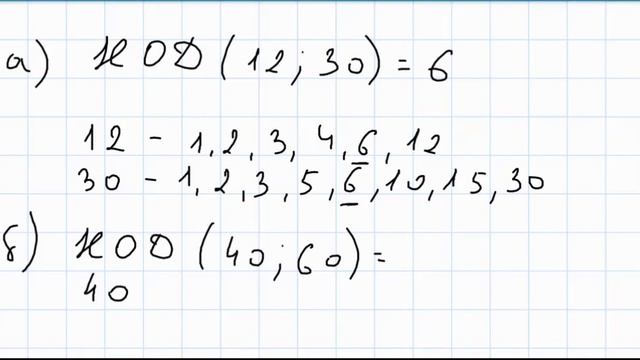 а) НОД (12; 30) = 6
12 - 1, 2, 3, 4, 6, 12
30 - 1, 2, 3, 5, 6, 10, 15, 30
б) НОД (40; 60) =
40